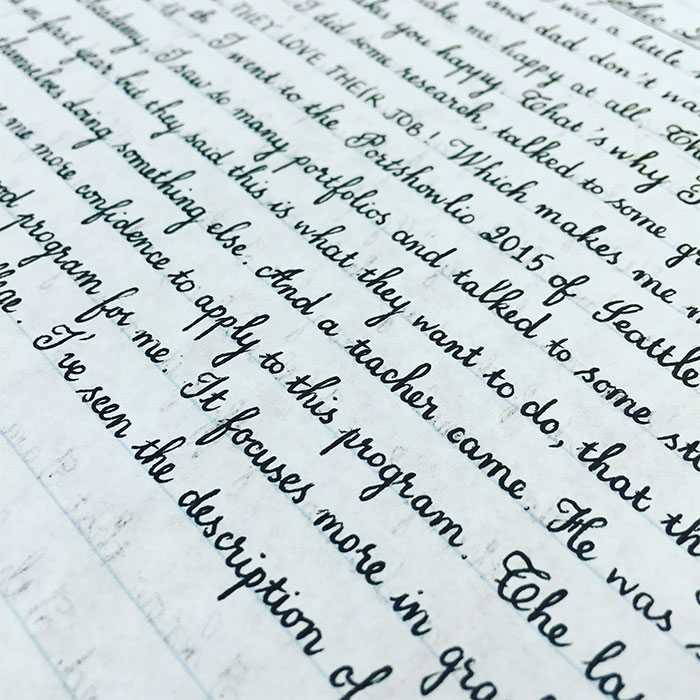 was a little
and dad don't wa
me happy at all
you happy That's why
I did some research, talked to some
THEY LOVE THEIR JOB! Which makes me
I went to the Portshowlio 2015 of Seattle
I saw so many portfolios and talked to some
in first year but they said this is what they want to do, that th
hemselves doing something else. And a teacher came. He was
me more confidence to apply to this program. The la
od program for me. It focuses more in gra
I've seen the description of